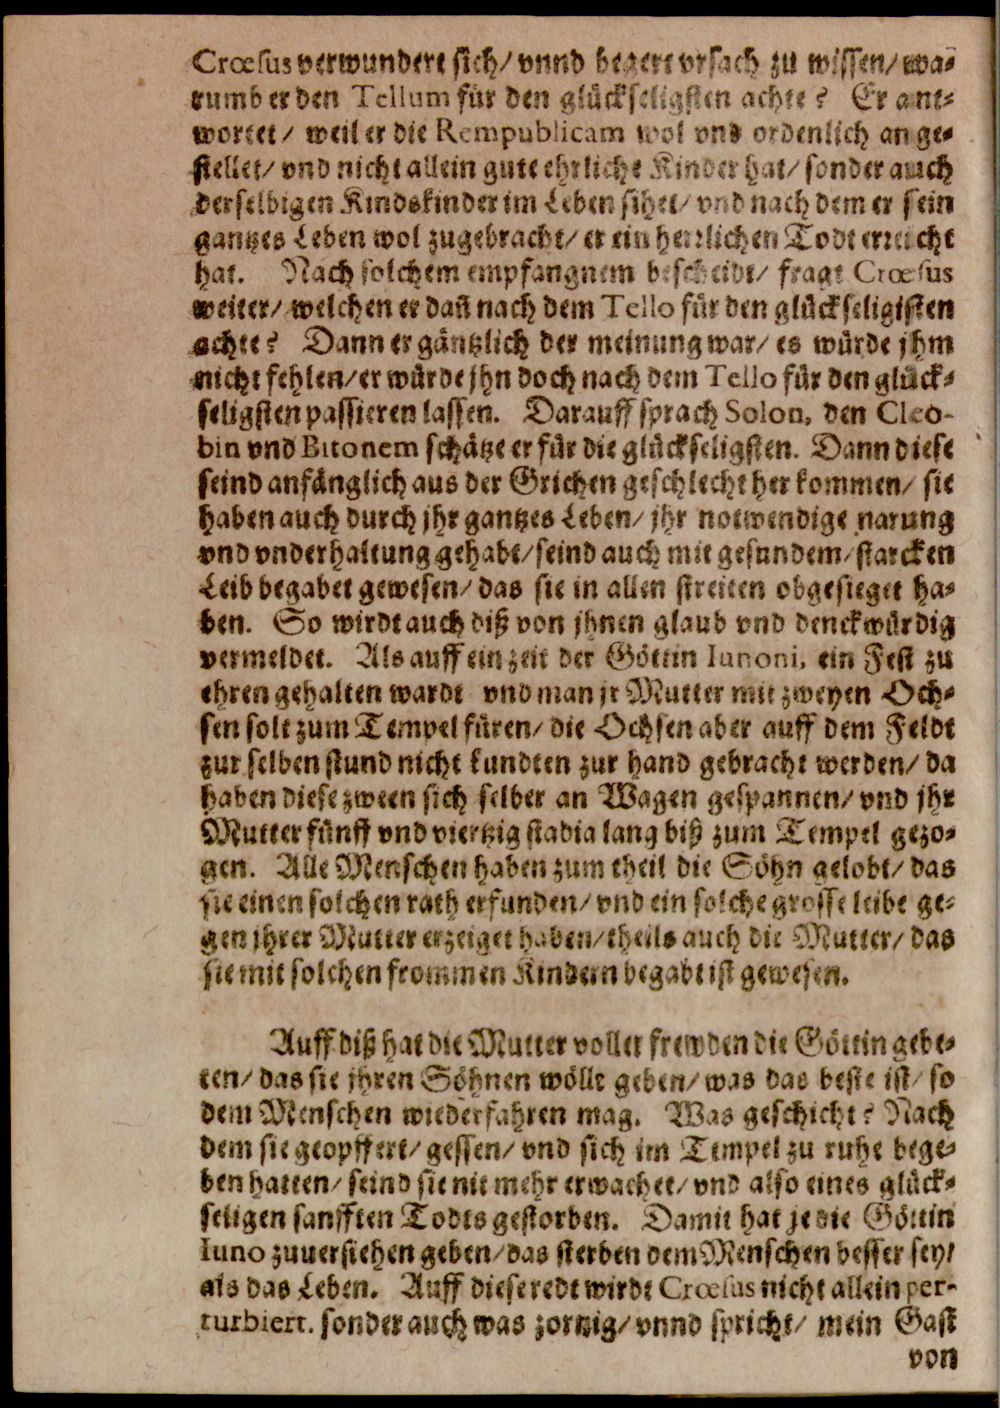 Crœsus verwundert sich/ vnnd begert vrsach zu wissen/ wa⸗
rumb er den Tellum für den glückseligsten achte? Er ant⸗
wortet/ weil er die Rempublicam wol vnd ordenlich ange⸗
stellet/ vnd nicht allein gute ehrliche Kinder hat/ sonder auch
derselbigen Kindskinder im Leben sihet/ vnd nach dem er sein
gantzes Leben wol zugebracht/ er ein herrlichen Todt erreicht
hat. Nach solchem empfangnem bescheidt/ fragt Crœsus
weiter/ welchen er dañ nach dem Tello für den glückseligisten
achte? Dann er gäntzlich der meinung war/ es würde jhm
nicht fehlen/ er würde jhn doch nach dem Tello für den glück⸗
seligsten passieren lassen. Darauff sprach Solon, den Cleo-
bin vnd Bitonem schätze er für die glückseligsten. Dann diese
seind anfänglich aus der Grichen geschlecht her kommen/ sie
haben auch durch jhr gantzes Leben/ jhr notwendige narung
vnd vnderhaltung gehabt/ seind auch mit gesundem/ starcken
Leib begabet gewesen/ das sie in allen streiten obgesieget ha⸗
ben. So wirdt auch diß von jhnen glaub vnd denckwürdig
vermeldet. Als auff ein zeit der Göttin Iunoni, ein Fest zu
ehren gehalten wardt vnd man jr Mutter mit zweyen Och⸗
sen solt zum Tempel füren/ die Ochsen aber auff dem Feldt
zur selben stund nicht kundten zur hand gebracht werden/ da
haben diese zween sich selber an Wagen gespannen/ vnd jhr
Mutter fünff vnd viertzig stadia lang biß zum Tempel gezo⸗
gen. Alle Menschen haben zum theil die Söhn gelobt/ das
sie einen solchen rath erfunden/ vnd ein solche grosse leibe ge⸗
gen jhrer Mutter erzeiget haben/ theils auch die Mutter/ das
sie mit solchen frommen Kindern begabt ist gewesen.
Auff diß hat die Mutter voller frewden die Göttin gebe⸗
ten/ das sie jhren Söhnen wölle geben/ was das beste ist/ so
dem Menschen wiederfahren mag. Was geschicht? Nach
dem sie geopffert/ gessen/ vnd sich im Tempel zu ruhe bege⸗
ben hatten/ seind sie nit mehr erwachet/ vnd also eines glück⸗
seligen sanfften Todts gestorben. Damit hat je die Göttin
Iuno zuuerstehen geben/ das sterben dem Menschen besser sey/
als das Leben. Auff diese redt wirdt Crœsus nicht allein per-
turbiert. sonder auch was zortzig/ vnnd spricht/ mein Gast
von